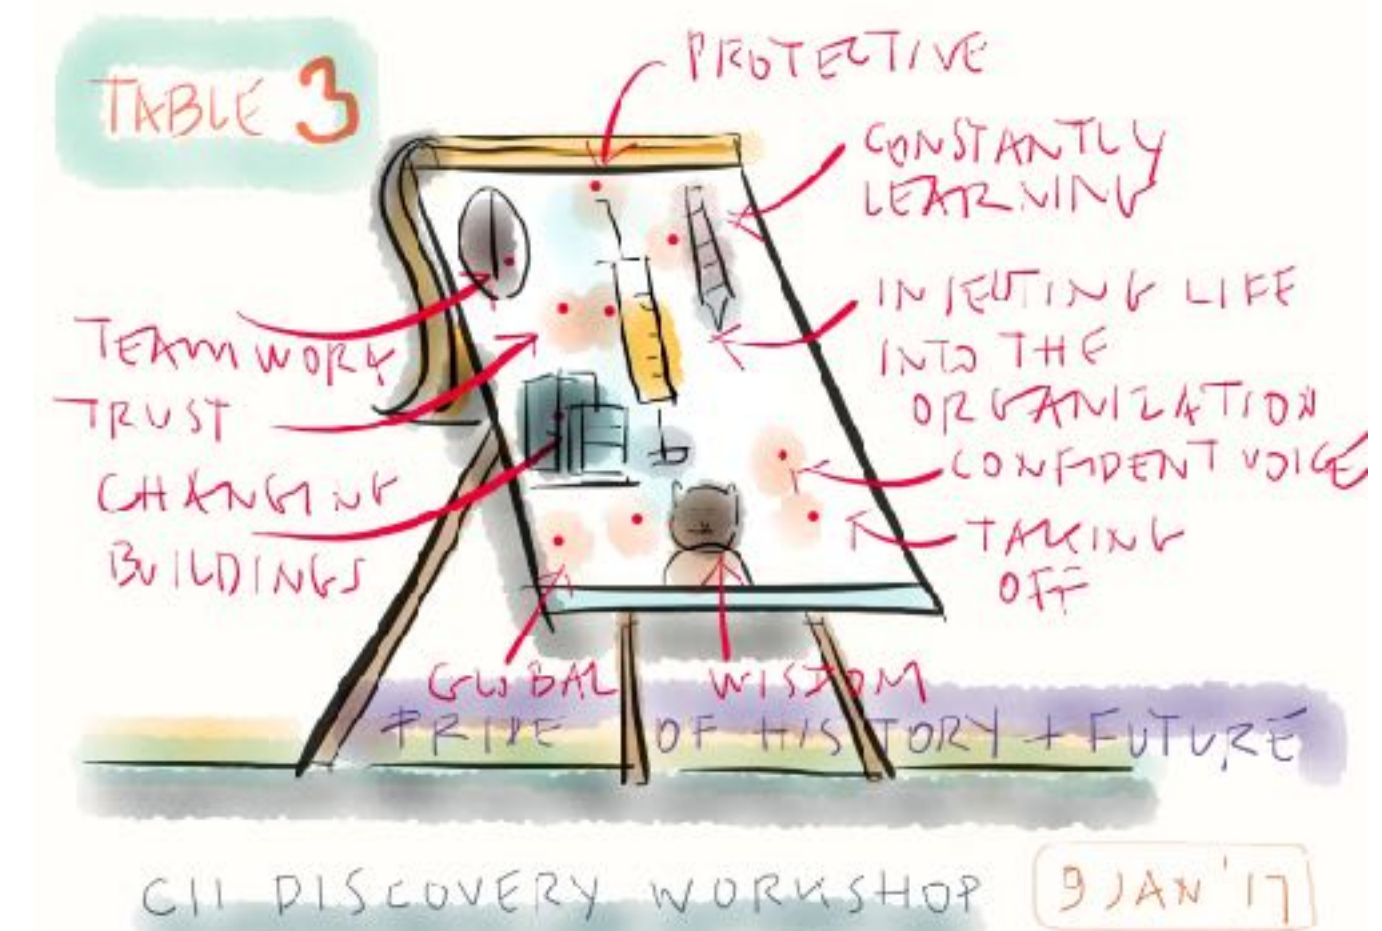 TABLE 3
PROTECTIVE
CONSTANTLY
LEARNING
INJECTING LIFE
INTO THE
ORGANIZATION
CONFIDENT VOICE
TAKING
OFF
TEAMWORK
TRUST
CHANGING
BUILDINGS
GLOBAL
WISDOM
PRIDE OF HISTORY + FUTURE
CII DISCOVERY WORKSHOP
9 JAN '17